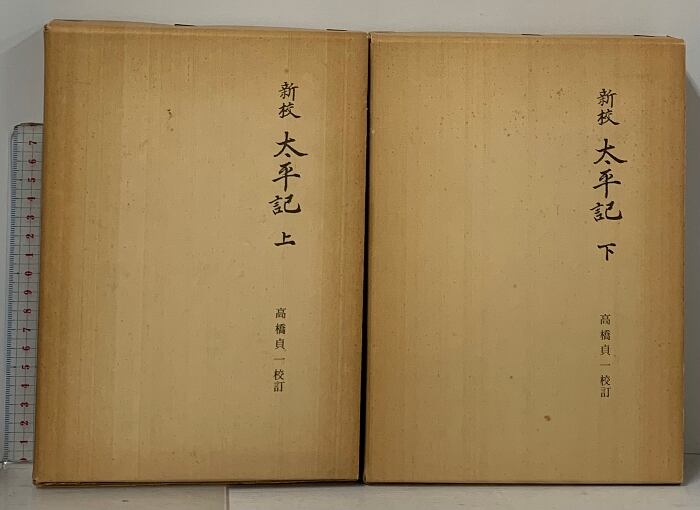 新校
太平記 上
高橋貞一校訂
新校
太平記 下
高橋貞一校訂